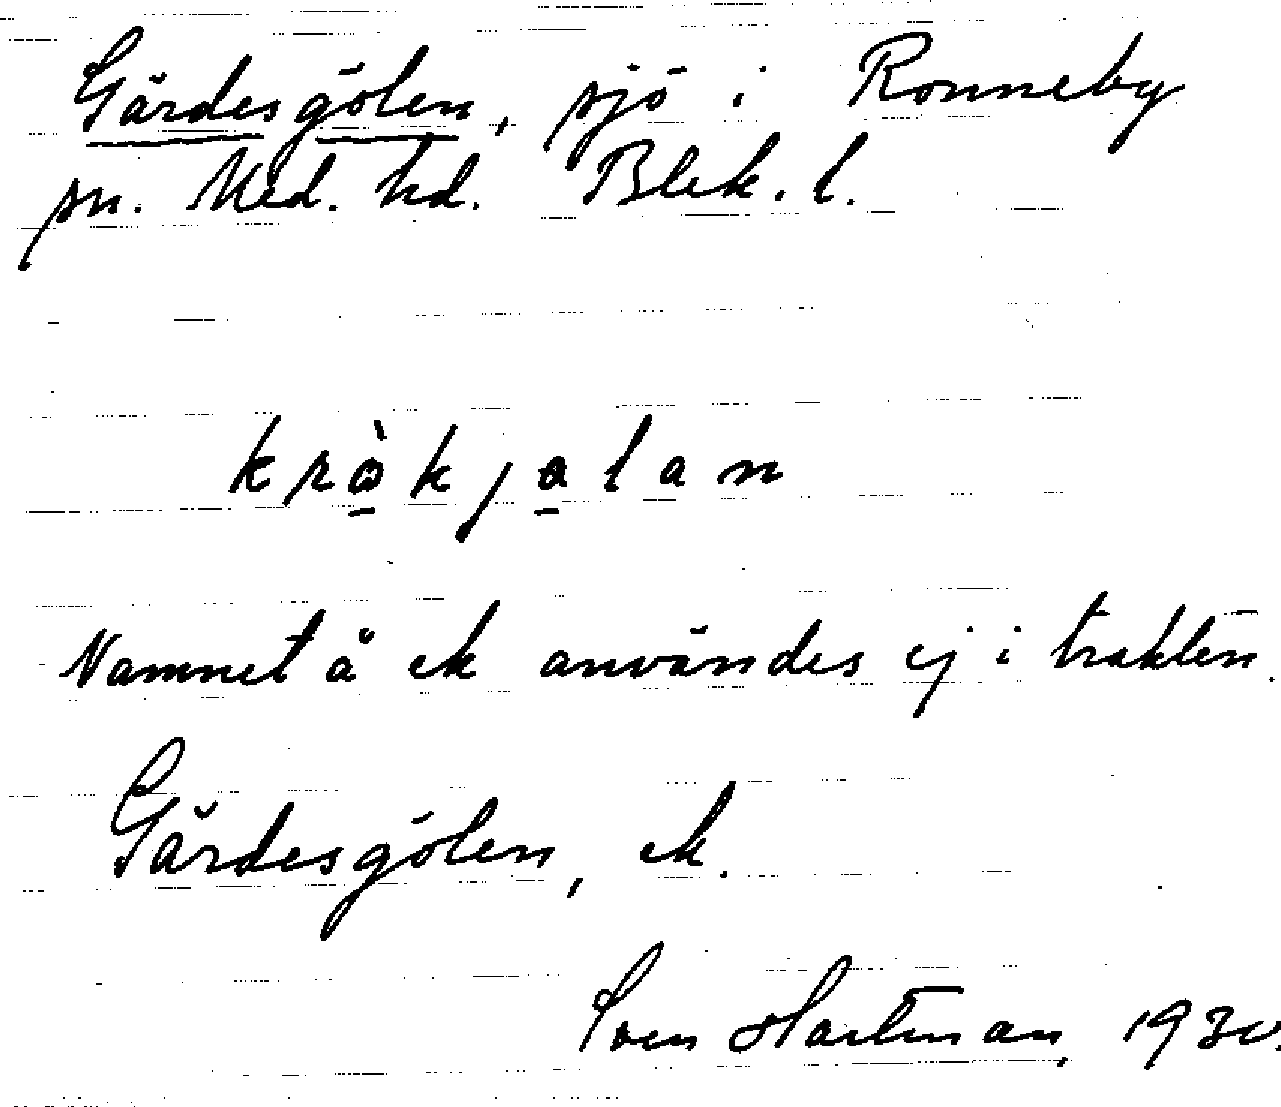 Gärdesgölen, sjö i Ronneby
sn. Med. hd. Blek. l.
kràkjalan
Namnet å ek användes ej i trakten.
Gärdesgölen, ek.
Sven Hartman, 1930.